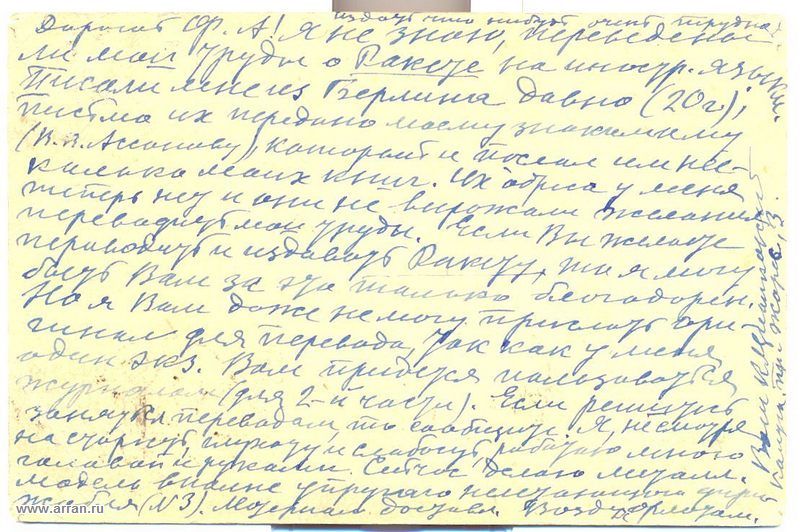 Дорогой Ф. А! Я не знаю, переведены
ли мои труды о Ракете на иностр. языки.
Писали мне из Берлина давно (20 г),
письмо их передано моему знакомому
(В. В. Ассонову), который и послал им не-
сколько моих книг. Их адреса у меня
теперь нет и они не выражали желания
переводить мои труды. Если Вы желаете
переводить и издавать Ракету, то я могу
быть Вам за это только благодарен.
Но я Вам даже не могу прислать ори-
гинал для перевода, так как у меня
один экз. Вам придется пользоваться
журналом (для 2-й части). Если решитесь
заняться переводом, то сообщите. Я, несмотря
на старость, глухоту и слабость, работаю много
головой и руками. Сейчас делаю металл.
модель вполне упругого дириж
жабля (N 3). Материал
издать что нибудь очень трудно.
Ваш К. Циолковский
Калуга, 3.
www.arran.ru